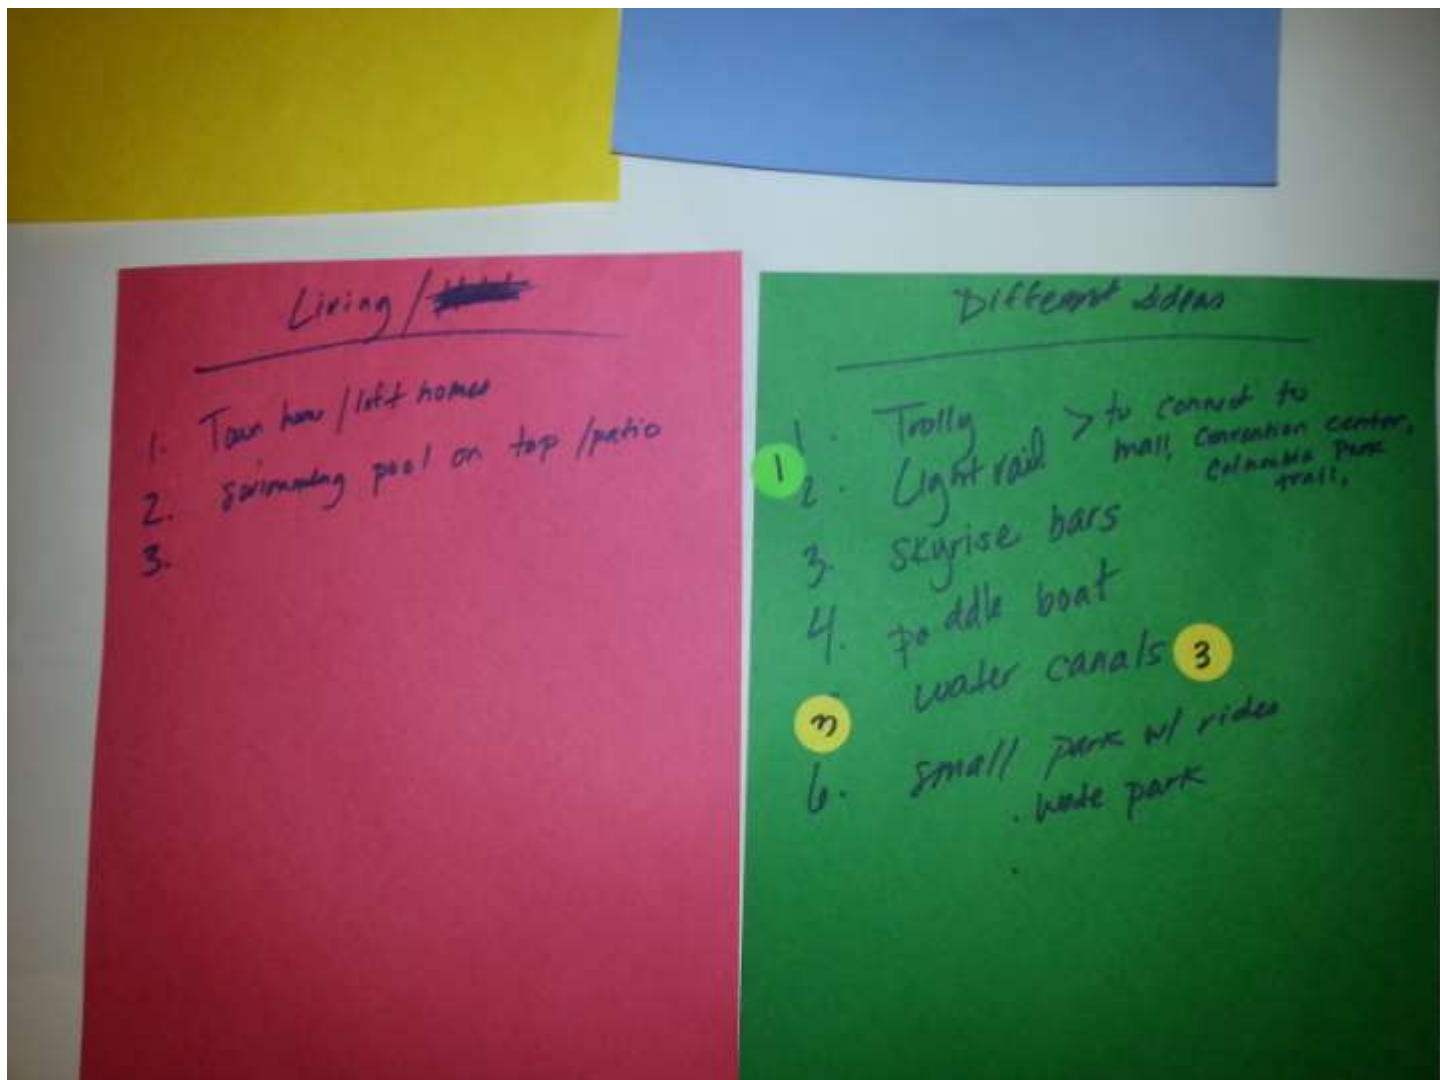 Living /
1. Town home / loft homes
2. Swimming pool on top / patio
3.
Different Ideas
1. Trolly > to connect to
mall, Convention center,
1
2. Light rail
Columbia Park
trail,
3. Skyrise bars
4. paddle boat
water canals 3
3
6. Small park w/ rides
. park
.